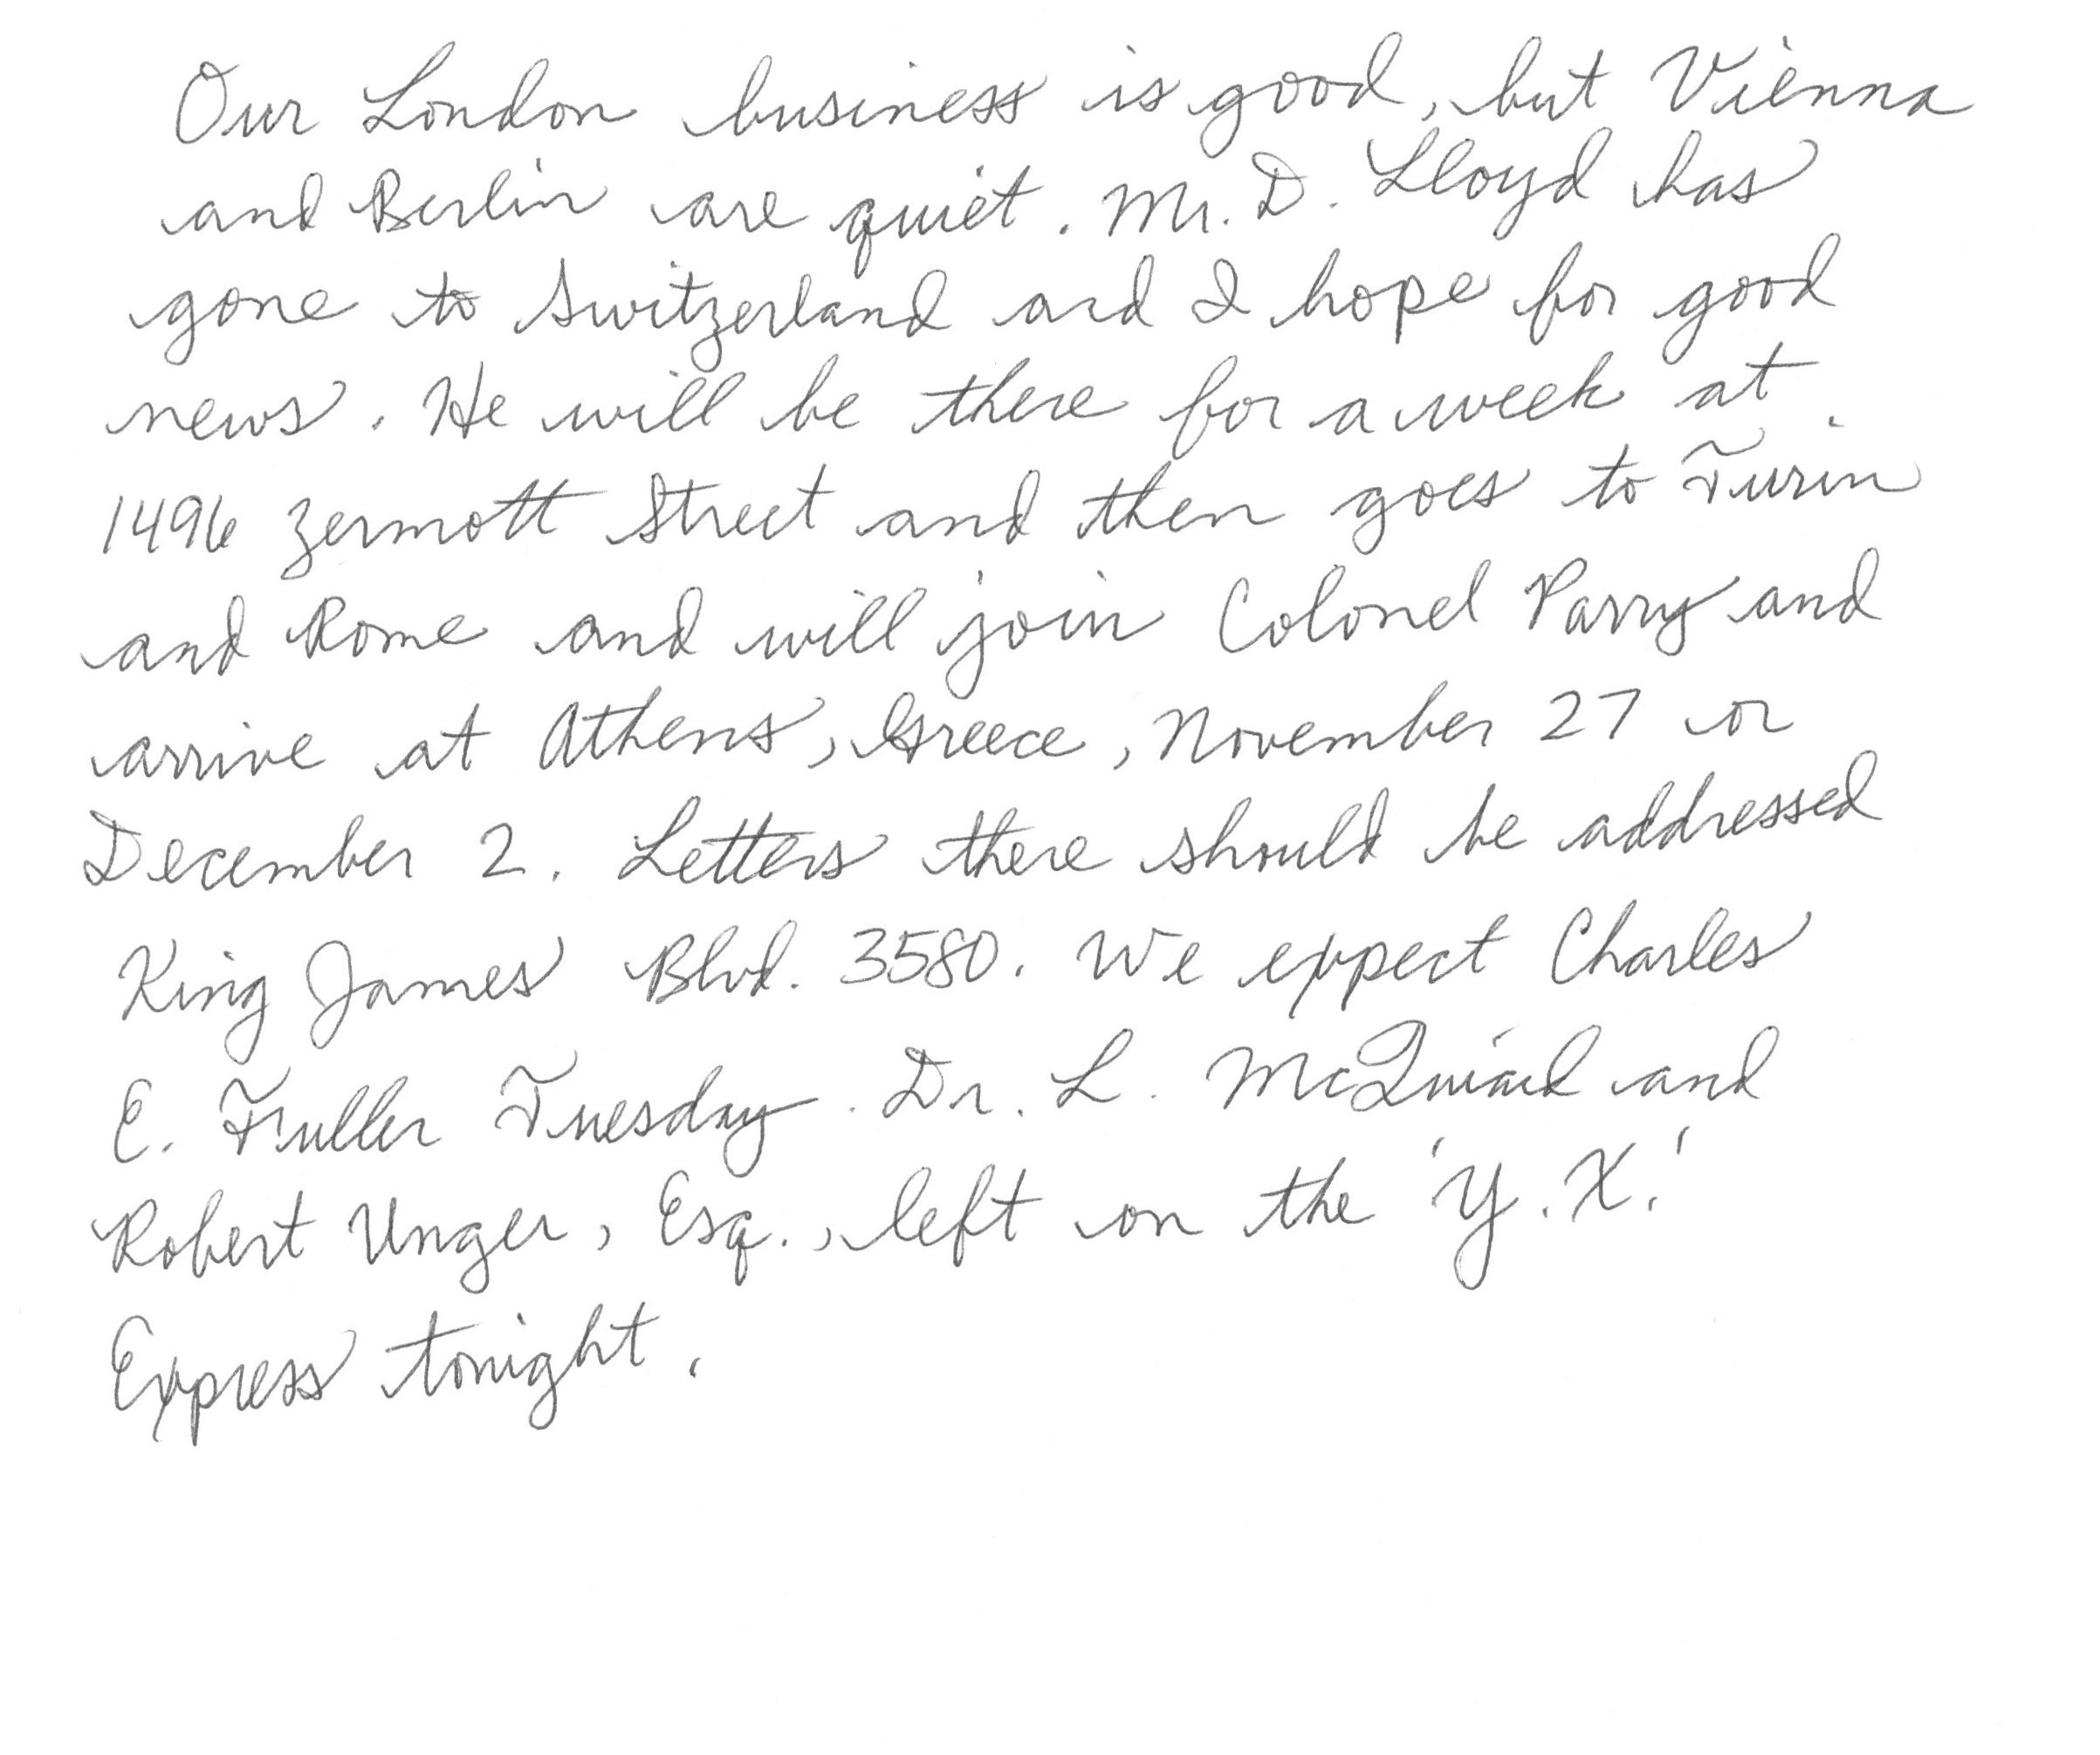 Our London business is good, but Vienna
and Berlin are quiet. Mr. D. Lloyd has
gone to Switzerland and I hope for good
news. He will be there for a week at
1496 Zermott Street and then goes to Turin
and Rome and will join Colonel Parry and
arrive at Athens, Greece, November 27 or
December 2. Letters there should be addressed
King James Blvd. 3580. We expect Charles
E. Fuller Tuesday. Dr. L. McQuaid and
Robert Unger, Esq., left on the 'Y.X.'
Express tonight.